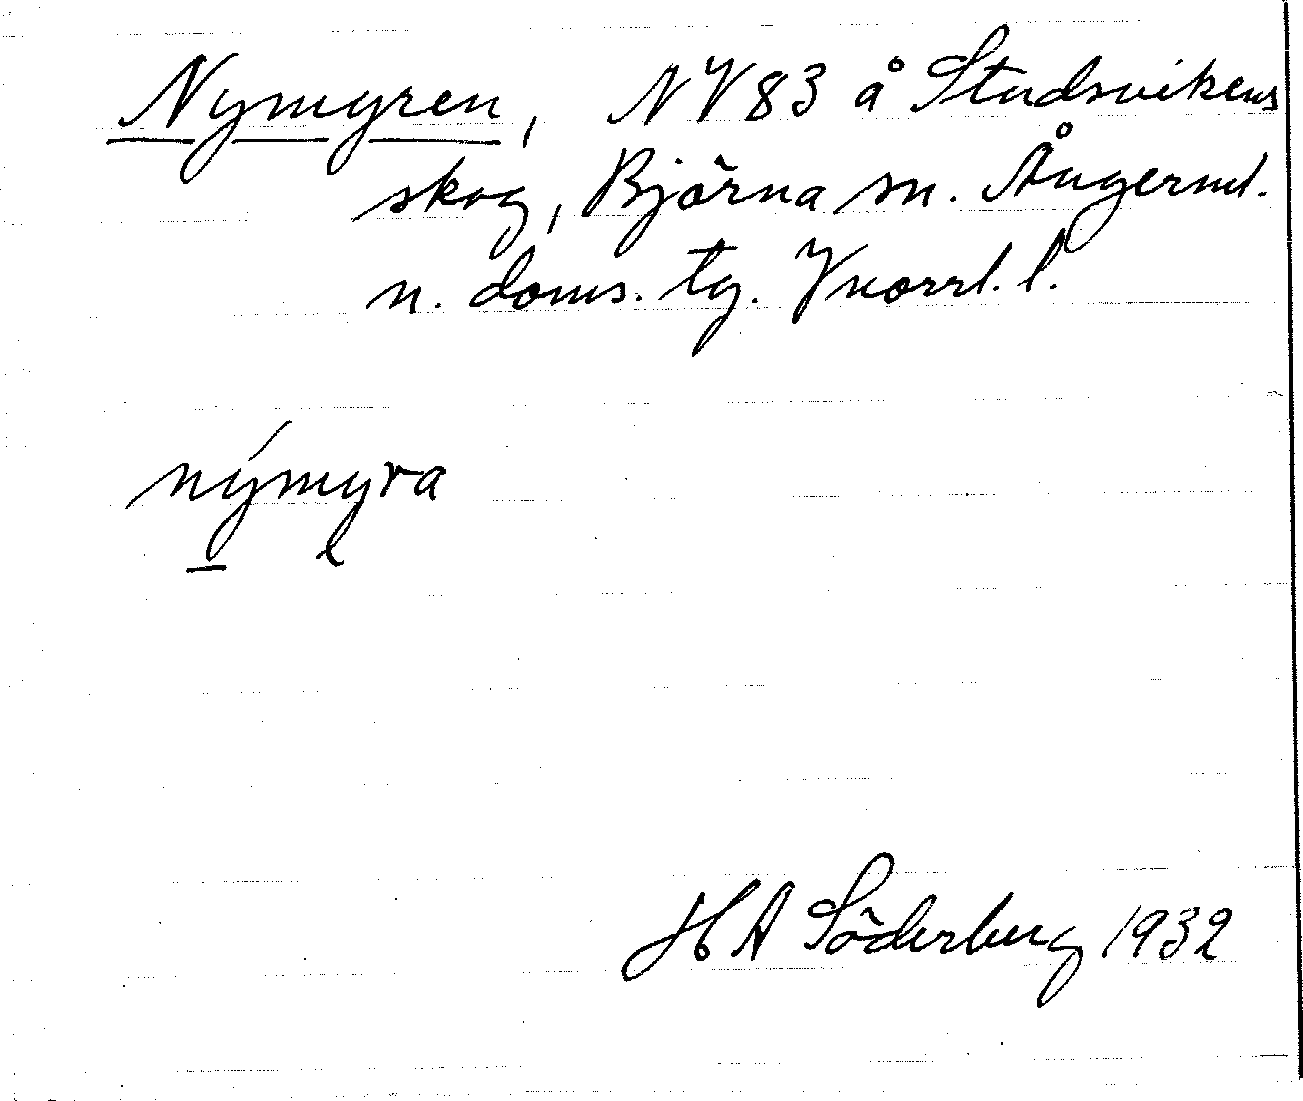 Nymyren, NV 83 å Studsvikens
skog, Björna sn. Ångerml.
n. doms. tg. Vnorrl. l.
nýmyra
H A Söderberg 1932